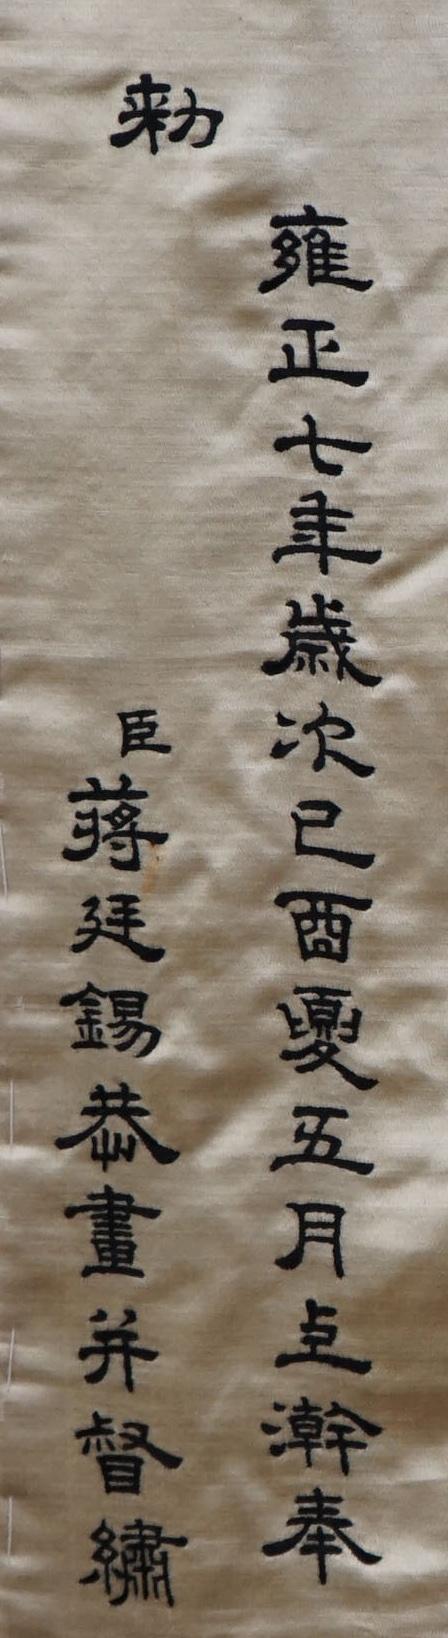 雍正七年歲次己酉夏五月上澣奉
勅
臣蔣廷錫恭畫并督繡